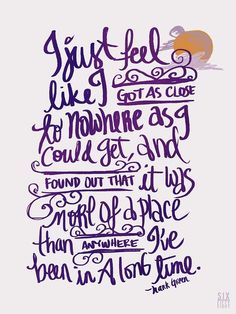 I just feel
like I GOT AS CLOSE
to NOWHERE as I
could get, and
FOUND OUT THAT it WAS
MORE of a place
than ANYWHERE I've
been in A long time.
-Hank Green
SIX